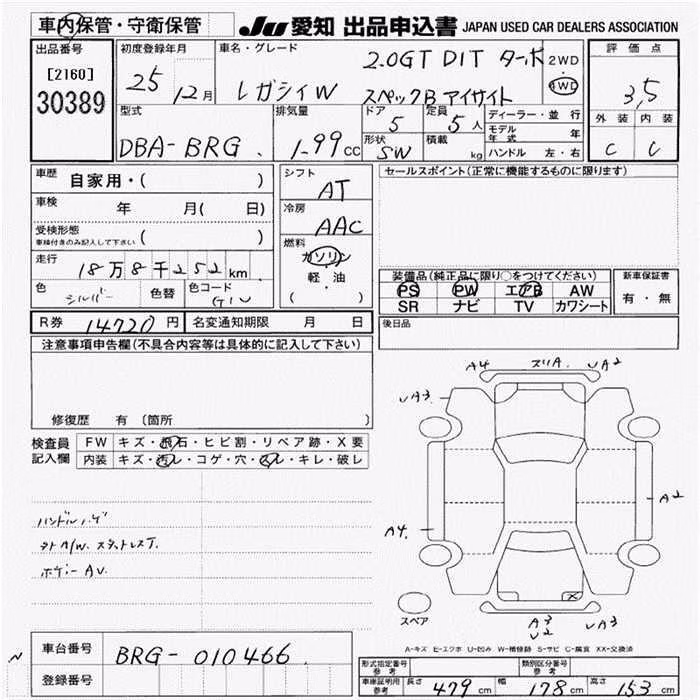 車内保管・守衛保管 JU愛知 出品申込書 JAPAN USED CAR DEALERS ASSOCIATION
出品番号 初度登録年月 車名・グレード 評価点
[2160] 30389
25 12月
レガシィW 2.0GT DIT ターボ 2WD
スペックB アイサイト 4WD
3.5
外装 内装
C C
型式 排気量 ドア 定員 ディーラー・並行
DBA-BRG 1.99CC 5 5人 モデル年式 年
形状 積載 ハンドル 左・右
SW kg
車歴 自家用・( )
シフト AT
セールスポイント(正常に機能するものに限ります)
車検 年 月( 日)
冷房 AAC
受検形態
車検付きのみ記入して下さい ( )
燃料 ガソリン
軽・油
( )
走行 18万8千252km
装備品(純正品に限り○をつけてください) 新車保証書
色 シルバー 色替 色コード G1U
PS PW エアB AW 有・無
SR ナビ TV カワシート
R券 14720円 名変通知期限 月 日
後日品
注意事項申告欄(不具合内容等は具体的に記入して下さい)
修復歴 有 〔箇所
A4 ズリA. UA2
UA3
検査員 FW キズ・飛石・ヒビ割・リペア跡・X要
記入欄 内装 キズ・汚レ・コゲ・穴・スレ・キレ・破レ
A2
A4
ハンドルハゲ
タトA/W. スタットレスT.
ボデーAU.
スペア
A3 UA3
U2
A-キズ E-エクボ U-凹み W-補修跡 S-サビ C-腐食 XX-交換済
車台番号 BRG-010466
登録番号
形式指定番号 参考 類別区分番号 参考
車庫証明用 参考 長さ 479cm 幅 178cm 高さ 153cm